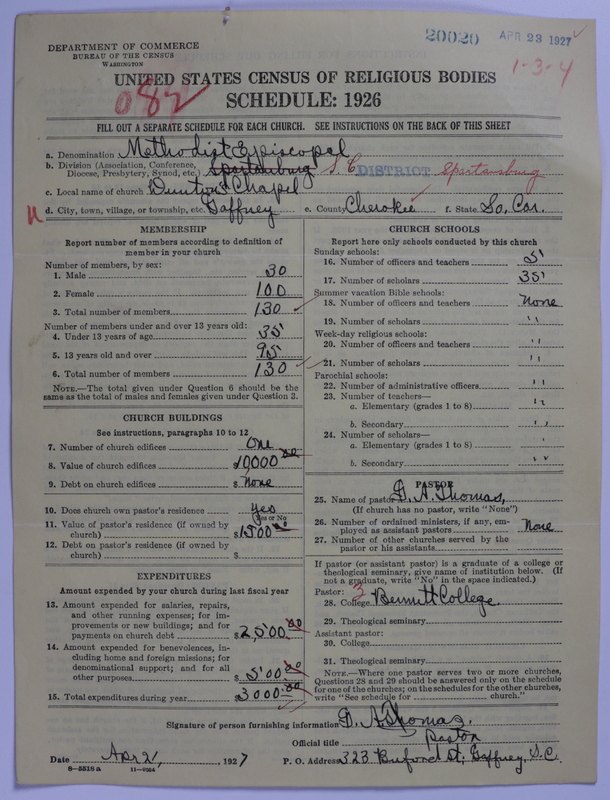 20020 APR 23 1927
DEPARTMENT OF COMMERCE
BUREAU OF THE CENSUS
WASHINGTON
1-3-4
UNITED STATES CENSUS OF RELIGIOUS BODIES
082
SCHEDULE: 1926
FILL OUT A SEPARATE SCHEDULE FOR EACH CHURCH. SEE INSTRUCTIONS ON THE BACK OF THIS SHEET
a. Denomination Methodist Episcopal
b. Division (Association, Conference, Diocese, Presbytery, Synod, etc.) Spartanburg S. C. DISTRICT Spartanburg
c. Local name of church Chapel
d. City, town, village, or township, etc. Gaffney e. County Cherokee f. State So. Car.
MEMBERSHIP
Report number of members according to definition of
member in your church
Number of members, by sex:
1. Male 30
2. Female 100
3. Total number of members 130
Number of members under and over 13 years old:
4. Under 13 years of age 35
5. 13 years old and over 95
6. Total number of members 130
NOTE.—The total given under Question 6 should be the
same as the total of males and females given under Question 3.
CHURCH BUILDINGS
See instructions, paragraphs 10 to 12
7. Number of church edifices One
8. Value of church edifices $10000 00
9. Debt on church edifices $ None
10. Does church own pastor's residence? Yes
(Yes or No)
11. Value of pastor's residence (if owned by
church) $1500 00
12. Debt on pastor's residence (if owned by
church) $
EXPENDITURES
Amount expended by your church during last fiscal year
13. Amount expended for salaries, repairs,
and other running expenses; for im-
provements or new buildings; and for
payments on church debt $2,500 00
14. Amount expended for benevolences, in-
cluding home and foreign missions; for
denominational support; and for all
other purposes $500 00
15. Total expenditures during year $3000 00
CHURCH SCHOOLS
Report here only schools conducted by this church
Sunday schools:
16. Number of officers and teachers 5
17. Number of scholars 35
Summer vacation Bible schools:
18. Number of officers and teachers None
19. Number of scholars "
Week-day religious schools:
20. Number of officers and teachers "
21. Number of scholars "
Parochial schools:
22. Number of administrative officers "
23. Number of teachers—
a. Elementary (grades 1 to 8) "
b. Secondary "
24. Number of scholars—
a. Elementary (grades 1 to 8) "
b. Secondary "
PASTOR
25. Name of pastor G. A. Thomas,
(If church has no pastor, write "None")
26. Number of ordained ministers, if any, em-
ployed as assistant pastors None
27. Number of other churches served by the
pastor or his assistants
If pastor (or assistant pastor) is a graduate of a college or
theological seminary, give name of institution below. (If
not a graduate, write "No" in the space indicated.)
Pastor: 3
28. College Bennett College
29. Theological seminary
Assistant pastor:
30. College
31. Theological seminary
NOTE.—Where one pastor serves two or more churches,
Questions 28 and 29 should be answered only on the schedule
for one of the churches; on the schedules for the other churches,
write "See schedule for church."
Signature of person furnishing information G. A. Thomas.
Official title Pastor
Date Apr 21, 1927 P. O. Address 323 Buford St, Gaffney, S.C.
8—5518 a 11—9964